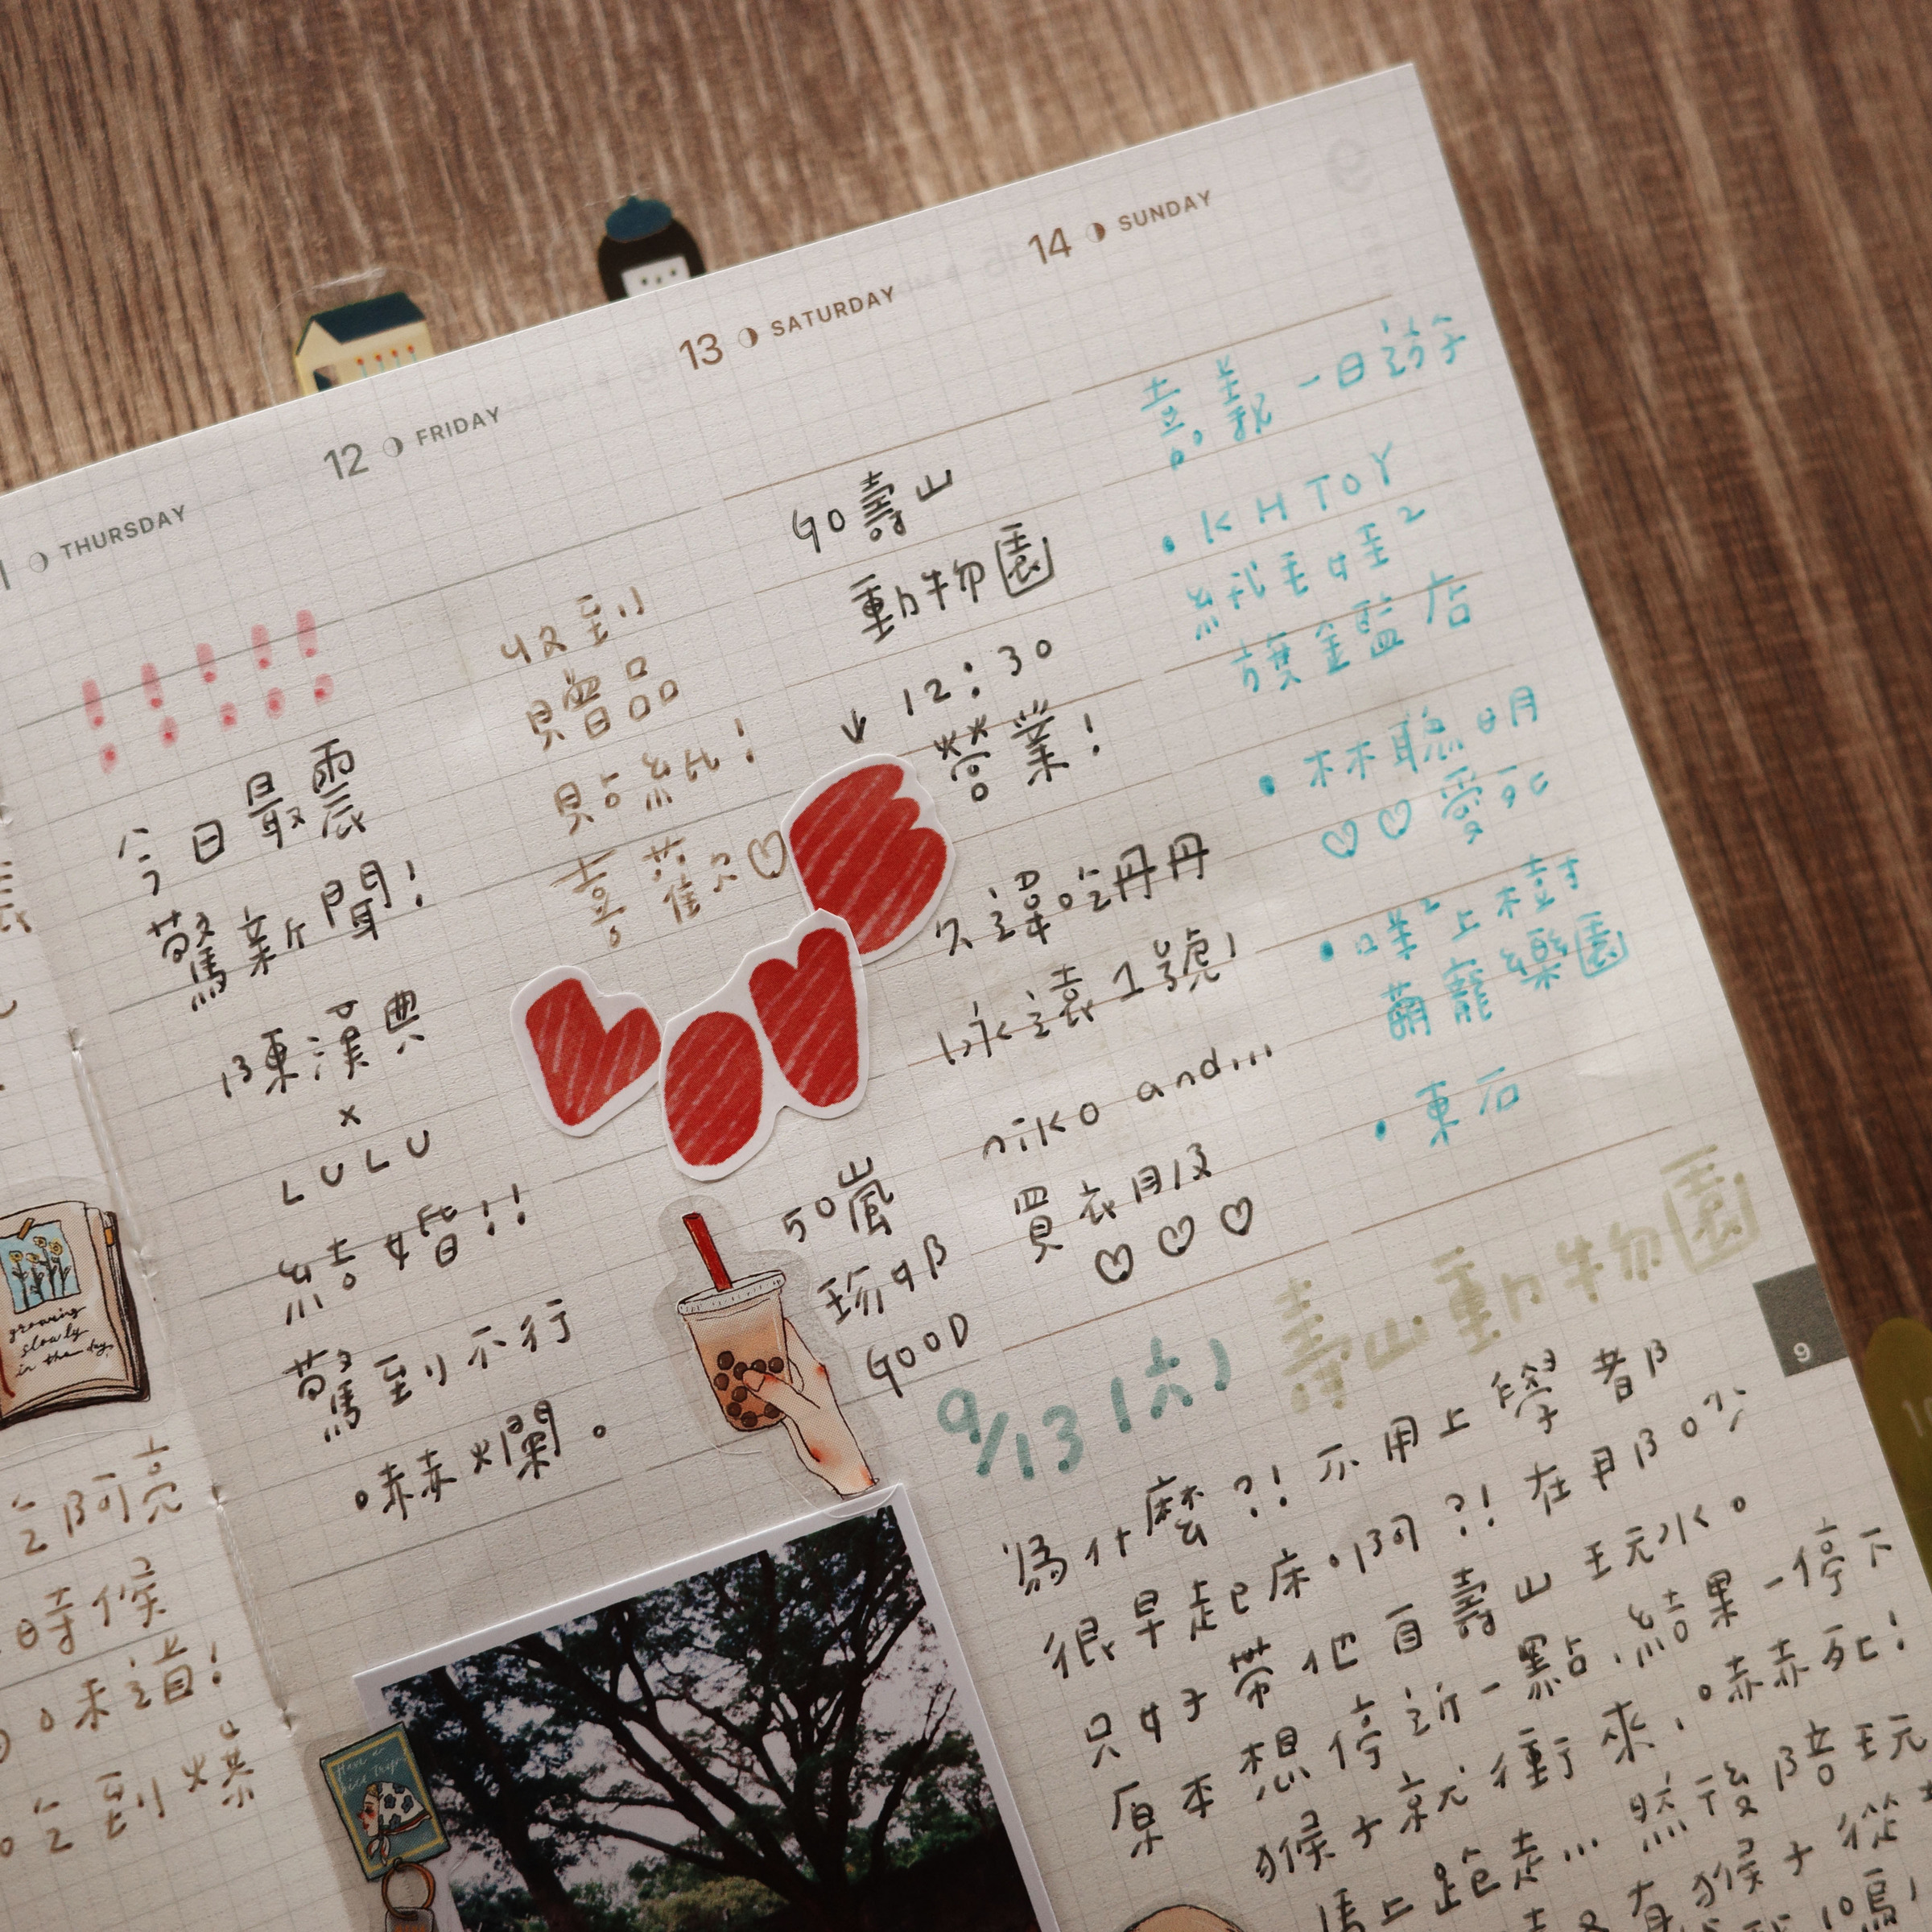 THURSDAY
12 FRIDAY
13 SATURDAY
14 SUNDAY
今日最震
驚新聞!
陳漢典
×
LULU
結婚!!
驚到不行
嚇爛。
收到
贈品
貼紙!
喜歡♡
GO壽山
動物園
12:30
↓ 營業!
久違吃丹丹
永遠1號!
niko and...
買衣服
♡♡♡
50嵐
珍奶
GOOD
嘉義一日遊
•KH TOY
絨毛娃²
旗艦店
•林聰明
♡♡愛死
•咩²上樹
萌寵樂園
•東石
9
9/13(六) 壽山動物園
為什麼?!不用上學都
很早起床啊?!在
只好帶他
壽山玩水。
原本想停近一點,結果一停下
猴子就衝來,嚇死!
馬上跑走... 然後陪玩
有猴子從
growing
slowly
in the day
Have a
nice trip
吃阿亮
時候
味道!
吃到爆